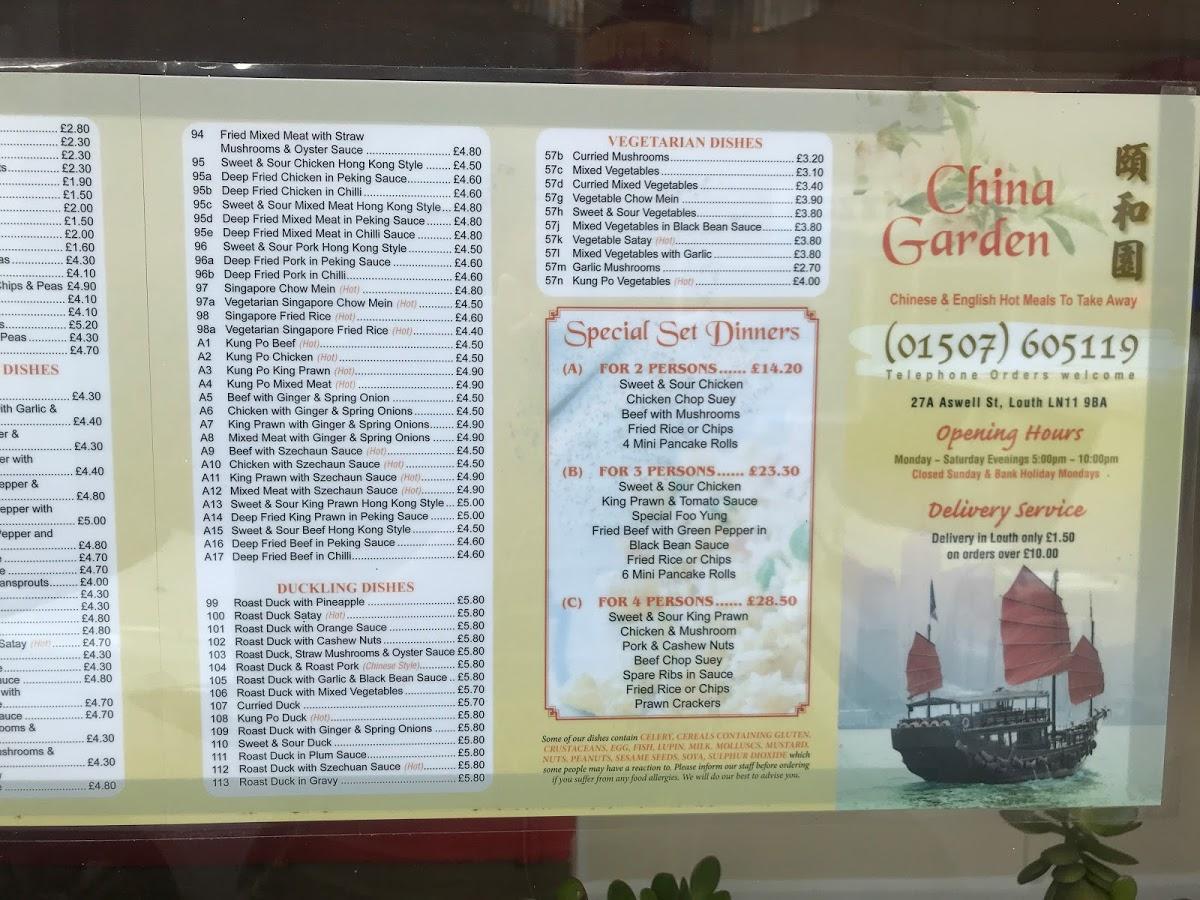 £2.80
£2.30
£2.30
£2.30
£1.90
£1.50
£2.00
£1.50
£2.00
£1.60
£4.30
£4.10
Chips & Peas £4.90
£4.10
£4.10
£5.20
Peas £4.30
£4.70
DISHES
£4.30
ith Garlic &
£4.40
er &
£4.30
er with
£4.40
epper &
£4.80
epper with
£5.00
Pepper and
£4.80
£4.70
£4.70
ansprouts £4.00
£4.30
£4.30
£4.80
£4.80
Satay (Hot) £4.70
£4.30
£4.30
auce £4.80
with
£4.70
auce £4.70
ooms &
£4.30
shrooms &
£4.30
£4.80
94 Fried Mixed Meat with Straw
Mushrooms & Oyster Sauce £4.80
95 Sweet & Sour Chicken Hong Kong Style £4.50
95a Deep Fried Chicken in Peking Sauce £4.60
95b Deep Fried Chicken in Chilli £4.60
95c Sweet & Sour Mixed Meat Hong Kong Style £4.80
95d Deep Fried Mixed Meat in Peking Sauce £4.80
95e Deep Fried Mixed Meat in Chilli Sauce £4.80
96 Sweet & Sour Pork Hong Kong Style £4.50
96a Deep Fried Pork in Peking Sauce £4.60
96b Deep Fried Pork in Chilli £4.60
97 Singapore Chow Mein (Hot) £4.80
97a Vegetarian Singapore Chow Mein (Hot) £4.50
98 Singapore Fried Rice (Hot) £4.60
98a Vegetarian Singapore Fried Rice (Hot) £4.40
A1 Kung Po Beef (Hot) £4.50
A2 Kung Po Chicken (Hot) £4.50
A3 Kung Po King Prawn (Hot) £4.90
A4 Kung Po Mixed Meat (Hot) £4.90
A5 Beef with Ginger & Spring Onion £4.50
A6 Chicken with Ginger & Spring Onions £4.50
A7 King Prawn with Ginger & Spring Onions £4.90
A8 Mixed Meat with Ginger & Spring Onions £4.90
A9 Beef with Szechaun Sauce (Hot) £4.50
A10 Chicken with Szechaun Sauce (Hot) £4.50
A11 King Prawn with Szechaun Sauce (Hot) £4.90
A12 Mixed Meat with Szechaun Sauce (Hot) £4.90
A13 Sweet & Sour King Prawn Hong Kong Style £5.00
A14 Deep Fried King Prawn in Peking Sauce £5.00
A15 Sweet & Sour Beef Hong Kong Style £4.50
A16 Deep Fried Beef in Peking Sauce £4.60
A17 Deep Fried Beef in Chilli £4.60
DUCKLING DISHES
99 Roast Duck with Pineapple £5.80
100 Roast Duck Satay (Hot) £5.80
101 Roast Duck with Orange Sauce £5.80
102 Roast Duck with Cashew Nuts £5.80
103 Roast Duck, Straw Mushrooms & Oyster Sauce £5.80
104 Roast Duck & Roast Pork (Chinese Style) £5.80
105 Roast Duck with Garlic & Black Bean Sauce £5.80
106 Roast Duck with Mixed Vegetables £5.70
107 Curried Duck £5.70
108 Kung Po Duck (Hot) £5.80
109 Roast Duck with Ginger & Spring Onions £5.80
110 Sweet & Sour Duck £5.80
111 Roast Duck in Plum Sauce £5.80
112 Roast Duck with Szechuan Sauce (Hot) £5.80
113 Roast Duck in Gravy £5.80
VEGETARIAN DISHES
57b Curried Mushrooms £3.20
57c Mixed Vegetables £3.10
57d Curried Mixed Vegetables £3.40
57g Vegetable Chow Mein £3.90
57h Sweet & Sour Vegetables £3.80
57j Mixed Vegetables in Black Bean Sauce £3.80
57k Vegetable Satay (Hot) £3.80
57l Mixed Vegetables with Garlic £3.80
57m Garlic Mushrooms £2.70
57n Kung Po Vegetables (Hot) £4.00
Special Set Dinners
(A) FOR 2 PERSONS...... £14.20
Sweet & Sour Chicken
Chicken Chop Suey
Beef with Mushrooms
Fried Rice or Chips
4 Mini Pancake Rolls
(B) FOR 3 PERSONS...... £23.30
Sweet & Sour Chicken
King Prawn & Tomato Sauce
Special Foo Yung
Fried Beef with Green Pepper in
Black Bean Sauce
Fried Rice or Chips
6 Mini Pancake Rolls
(C) FOR 4 PERSONS...... £28.50
Sweet & Sour King Prawn
Chicken & Mushroom
Pork & Cashew Nuts
Beef Chop Suey
Spare Ribs in Sauce
Fried Rice or Chips
Prawn Crackers
Some of our dishes contain CELERY, CEREALS CONTAINING GLUTEN,
CRUSTACEANS, EGG, FISH, LUPIN, MILK, MOLLUSCS, MUSTARD,
NUTS, PEANUTS, SESAME SEEDS, SOYA, SULPHUR DIOXIDE which
some people may have a reaction to. Please inform our staff before ordering
if you suffer from any food allergies. We will do our best to advise you.
China
Garden
頤和園
Chinese & English Hot Meals To Take Away
(01507) 605119
Telephone Orders welcome
27A Aswell St, Louth LN11 9BA
Opening Hours
Monday – Saturday Evenings 5:00pm – 10:00pm
Closed Sunday & Bank Holiday Mondays
Delivery Service
Delivery in Louth only £1.50
on orders over £10.00